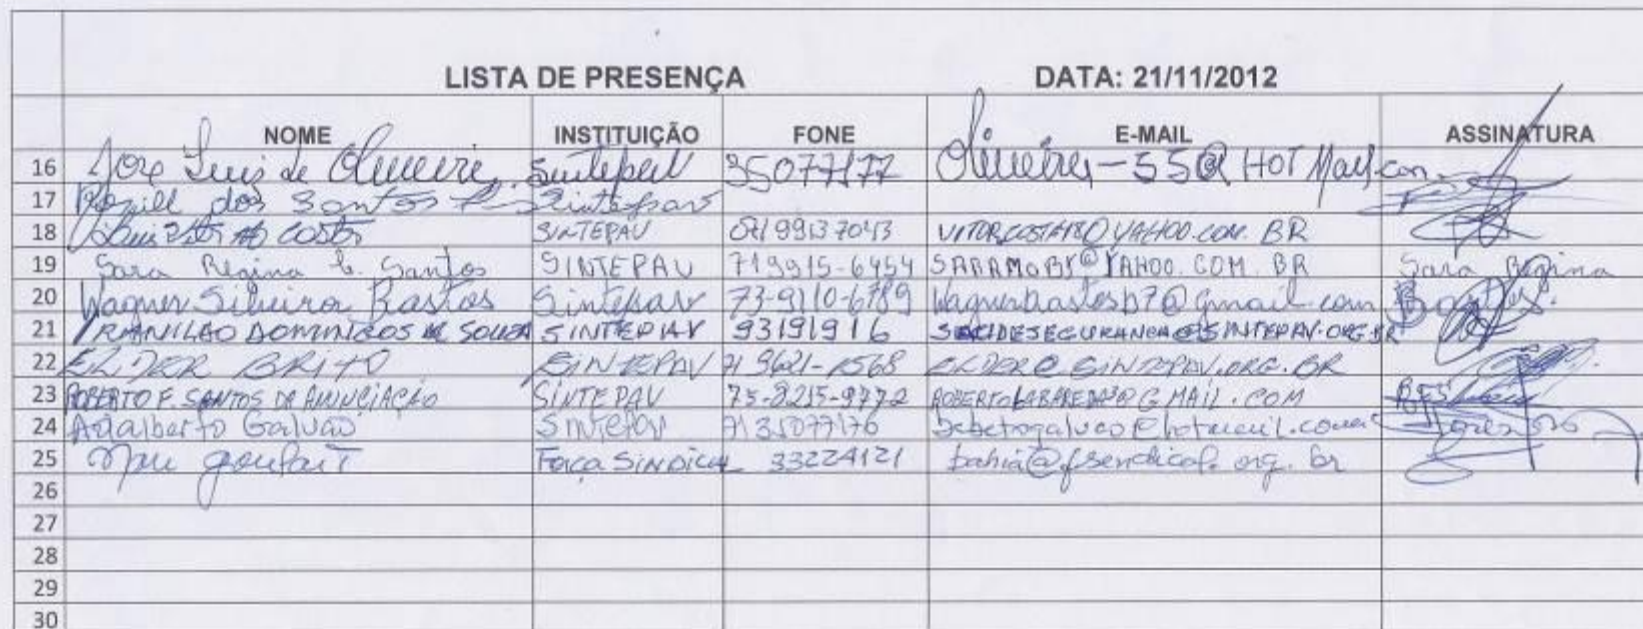 LISTA DE PRESENÇA DATA: 21/11/2012
NOME INSTITUIÇÃO FONE E-MAIL ASSINATURA
16 Jose Luis de Oliveira Sintepav 35077177 Oliveira-55@HOTMail.com
17 dos Santos Sintepav
18 Costa SINTEPAV VITORCOSTA18@YAHOO.COM.BR
19 Sara Regina C. Santos SINTEPAV 719915-6454 SARAMOBY@YAHOO.COM.BR Sara Regina
20 Wagner Silveira Bastos Sintepav 73-9110-6789 Wagnerbastosb7@gmail.com Bastos
21 IRANILDO DOMINGOS DE SOUZA SINTEPAV 93191916 @SINTEPAV.ORG.BR
22 ELDER BRITO SINTEPAV 71 9621-1568 ELDER@SINTEPAV.ORG.BR
23 ROBERTO F. SANTOS DA ANUNCIAÇÃO SINTEPAV 75-8215-9772 @GMAIL.COM
24 Adalberto Galvão Sintepav 7135077176 bebetogalvao@hotmail.com
25 Força SINDICAL 33224121 bahia@fsindical.org.br
26
27
28
29
30